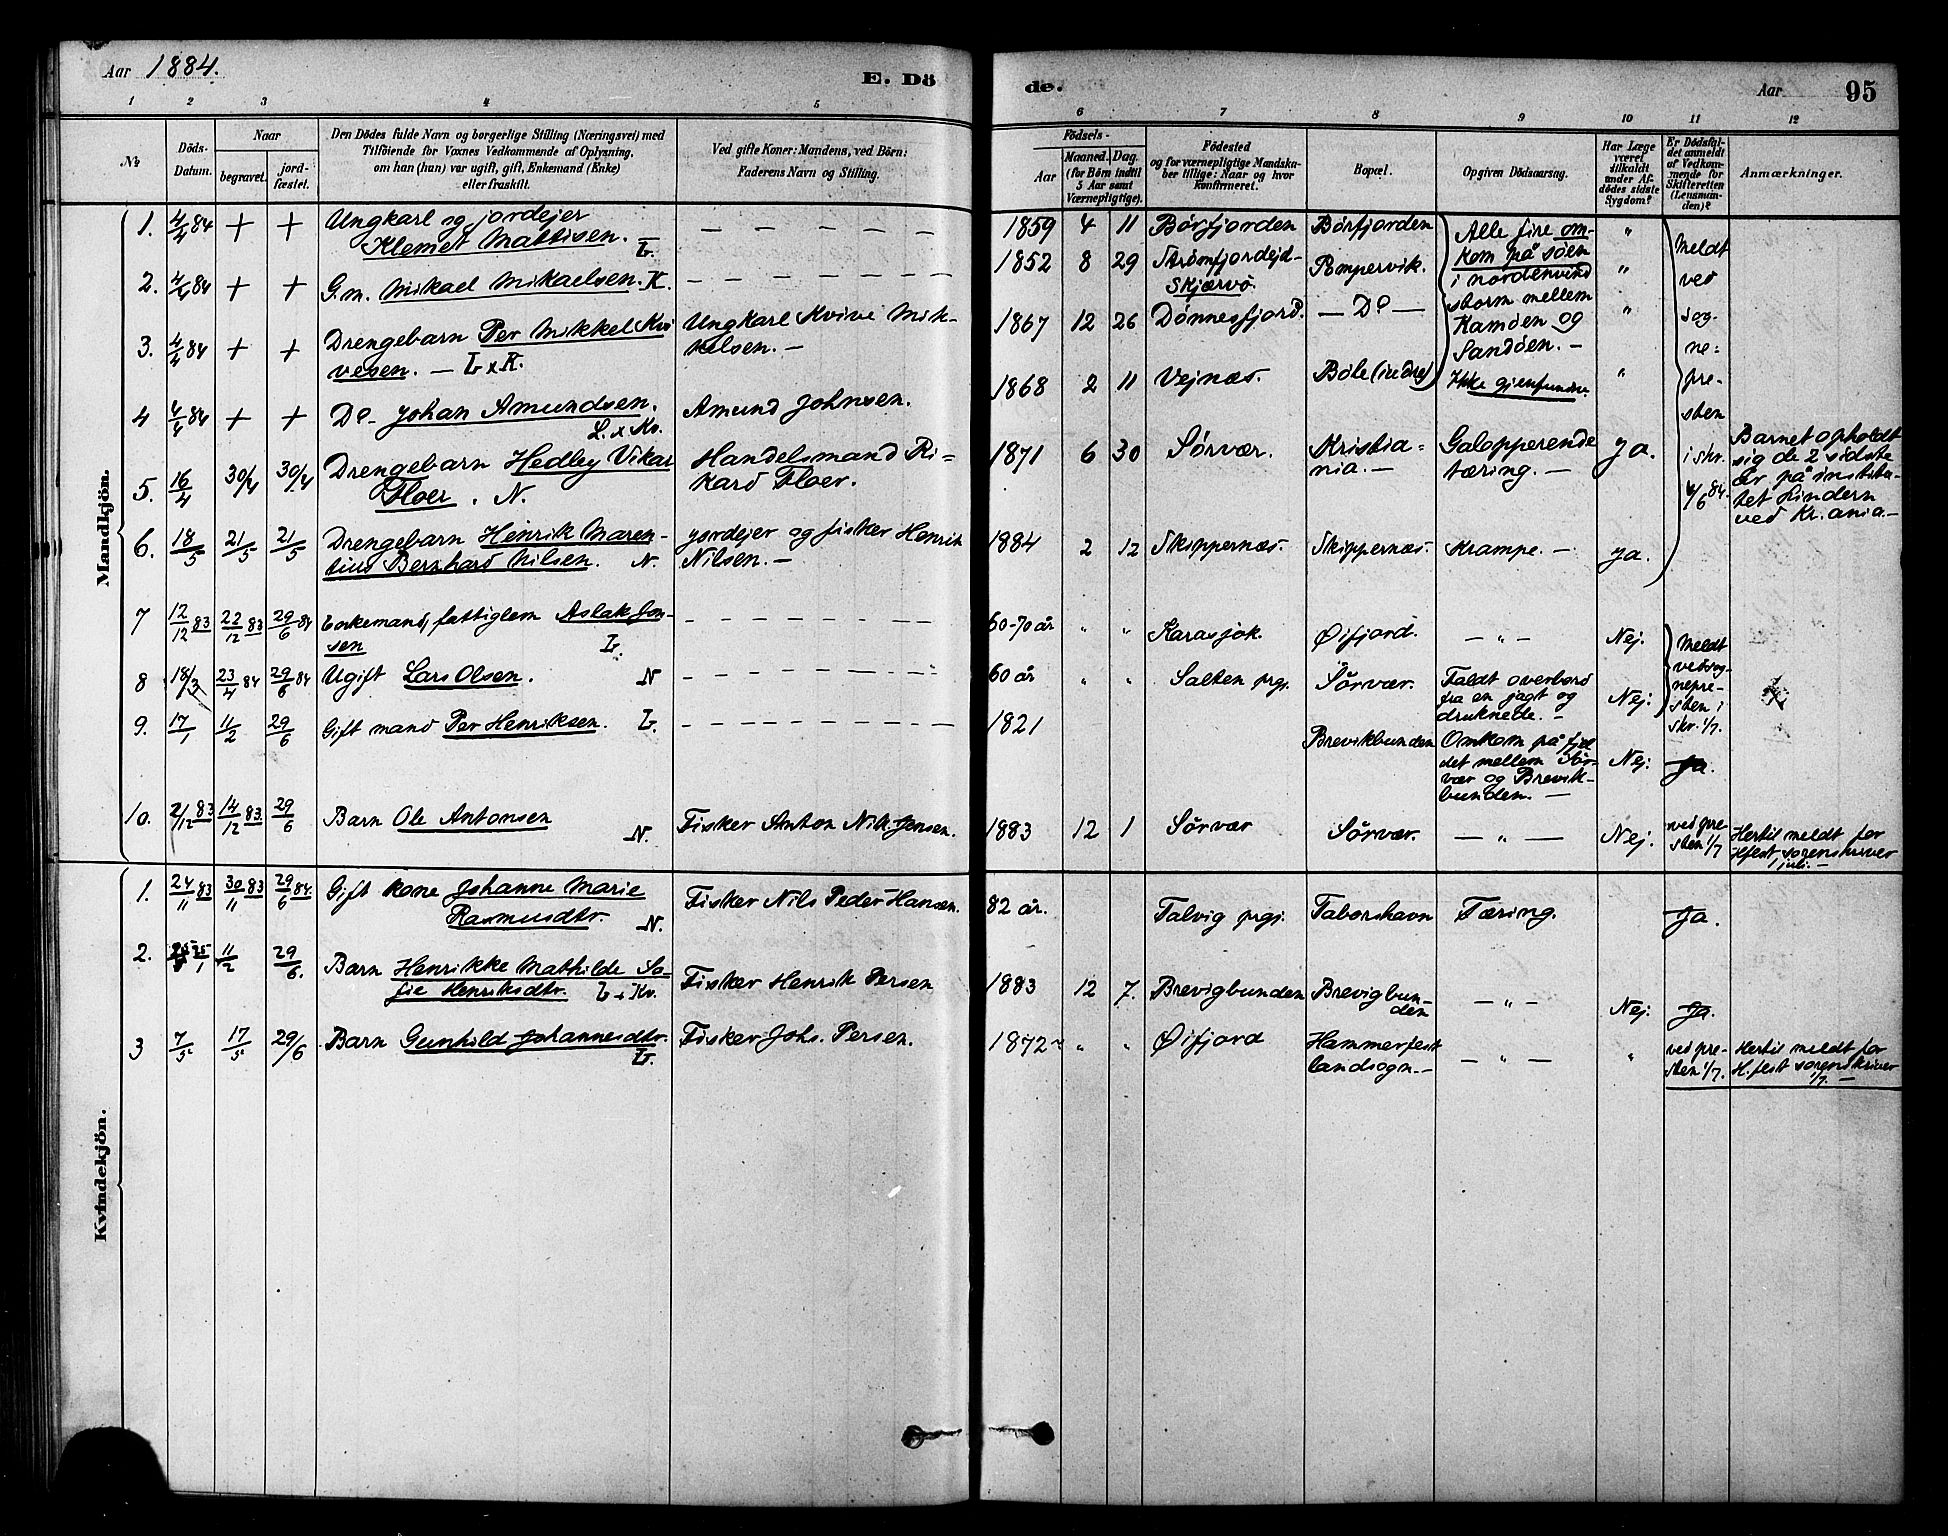 Aar 1884.
E. Dö
de.
Aar
95
1 2 3 4 5
6 7 8 9 10 11 12
№
Döds-Datum.
Naar
begravet.
jord-fæstet.
Den Dödes fulde Navn og borgerlige Stilling (Næringsvei) med
Tilföiende for Voxnes Vedkommende af Oplysning,
om han (hun) var ugift, gift, Enkemand (Enke)
eller fraskilt.
Ved gifte Koner: Mandens, ved Börn:
Faderens Navn og Stilling.
Födsels-
Aar
Maaned. Dag.
(for Börn indtil
5 Aar samt
Værnepligtige).
Födested
og for værnepligtige Mandska-
ber tillige: Naar og hvor
konfirmeret.
Bopæl.
Opgiven Dödsaarsag.
Har Læge
været
tilkaldt
under Af-
dödes sidste
Sygdom?
Er Dödsfal-
det anmeldt
af Vedkom-
mende for
Skifteretten
(Lensman-
den)?
Anmærkninger.
Mandkjön.
1. 4/4 84 + + Ungkarl og jordejer
Klemet Mattisen. L.
— — — — —
1859 4 11 Børfjorden Børfjorden
Alle fire om-
kom på søen
i nordenvind
storm mellem
Kamøen og
Sandøen. —
Ikke gjenfundne.
"
Meldt
ved
sog-
ne-
pre-
sten
i skr.
4/6 84.
2. 4/4 84 + + G.m. Mikael Mikaelsen. K. — — — — — —
1852 8 29 Strømfjordejd-
Skjærvö. "
3. 4/4 84 + + Drengebarn Per Mikkel Kvi
vesen. — L x K.
Ungkarl Kvive Mik-
kelsen. —
1867 12 26 Dønnesfjord. — Do — "
4 4/4 84 + + Do- Johan Amundsen.
L. x Kv.
Amund Johnsen.
1868 2 11 Vejnæs. Bøle (indre) "
5. 16/4 30/4 30/4 Drengebarn Hedley Vikar
Floer. N.
Handelsmand Ri-
kard Floer.
1871 6 30 Sørvær. Kristia-
nia. —
Galopperende
tæring. — ja.
Barnet opholdt
sig de 2 sidste
år på institu-
tet Lindern
ved Kr.ania. —
6. 18/5 21/5 21/5 Drengebarn Henrik Maren-
tius Bernhard Nilsen. N.
jordejer og fisker Henrik
Nilsen. —
1884 2 12 Skippernæs. Skippernæs. Krampe. — ja.
7 12/12 83 22/12 83 29/6 84 Enkemand, fattiglem Aslak Jon-
sen L.
— — — — — —
60-70 år " " Karasjok. Øifjord. — " — Nej.
Meldt
ved sog-
nepre-
sten i
skr. 1/7.
8 18/3 23/4 84 29/6 84 Ugift Lars Olsen. N — — — — — —
60 år " " Salten prgj. Sörvær. Faldt overbord
fra en jagt og
druknede. — Nej.
9. 17/1 11/2 29/6 Gift mand Per Henriksen. L. — — — — — —
1821 Brevikbunden Omkom på fjel
det mellem Sör-
vær og Brevik-
bunden. — Nej. Ja.
10. 2/12 83 14/12 83 29/6 Barn Ole Antonsen N.
Fisker Anton Nik. Jensen.
1883 12 1 Sörvær Sörvær. — " — Nej. ved pre-
sten 1/7
Hertil meldt for
Hfest. sorenskriver
juli. —
Kvindekjön.
1. 24/11 83 30/11 83 29/6 84. Gift kone Johanne Marie
Rasmusdtr. N.
Fisker Nils Peder Hansen.
82 år. Talvig prgj. Taborshavn Tæring. Ja.
2. 25/1 11/2 29/6. Barn Henrikke Mathilde So-
fie Henriksdtr. L x Kv.
Fisker Henrik Persen
1883 12 7. Brevigbunden Brevigbun-
den — " — Nej. Ja.
3 7/5 17/5 29/6 Barn Gunhild Johannesdtr.
L.
Fisker Johs. Persen.
1872 " " Øifjord Hammerfest
landsogn. — — " — " ved pre-
sten 1/7.
Hertil meldt for
H.fest sorenskriver
1/7. —